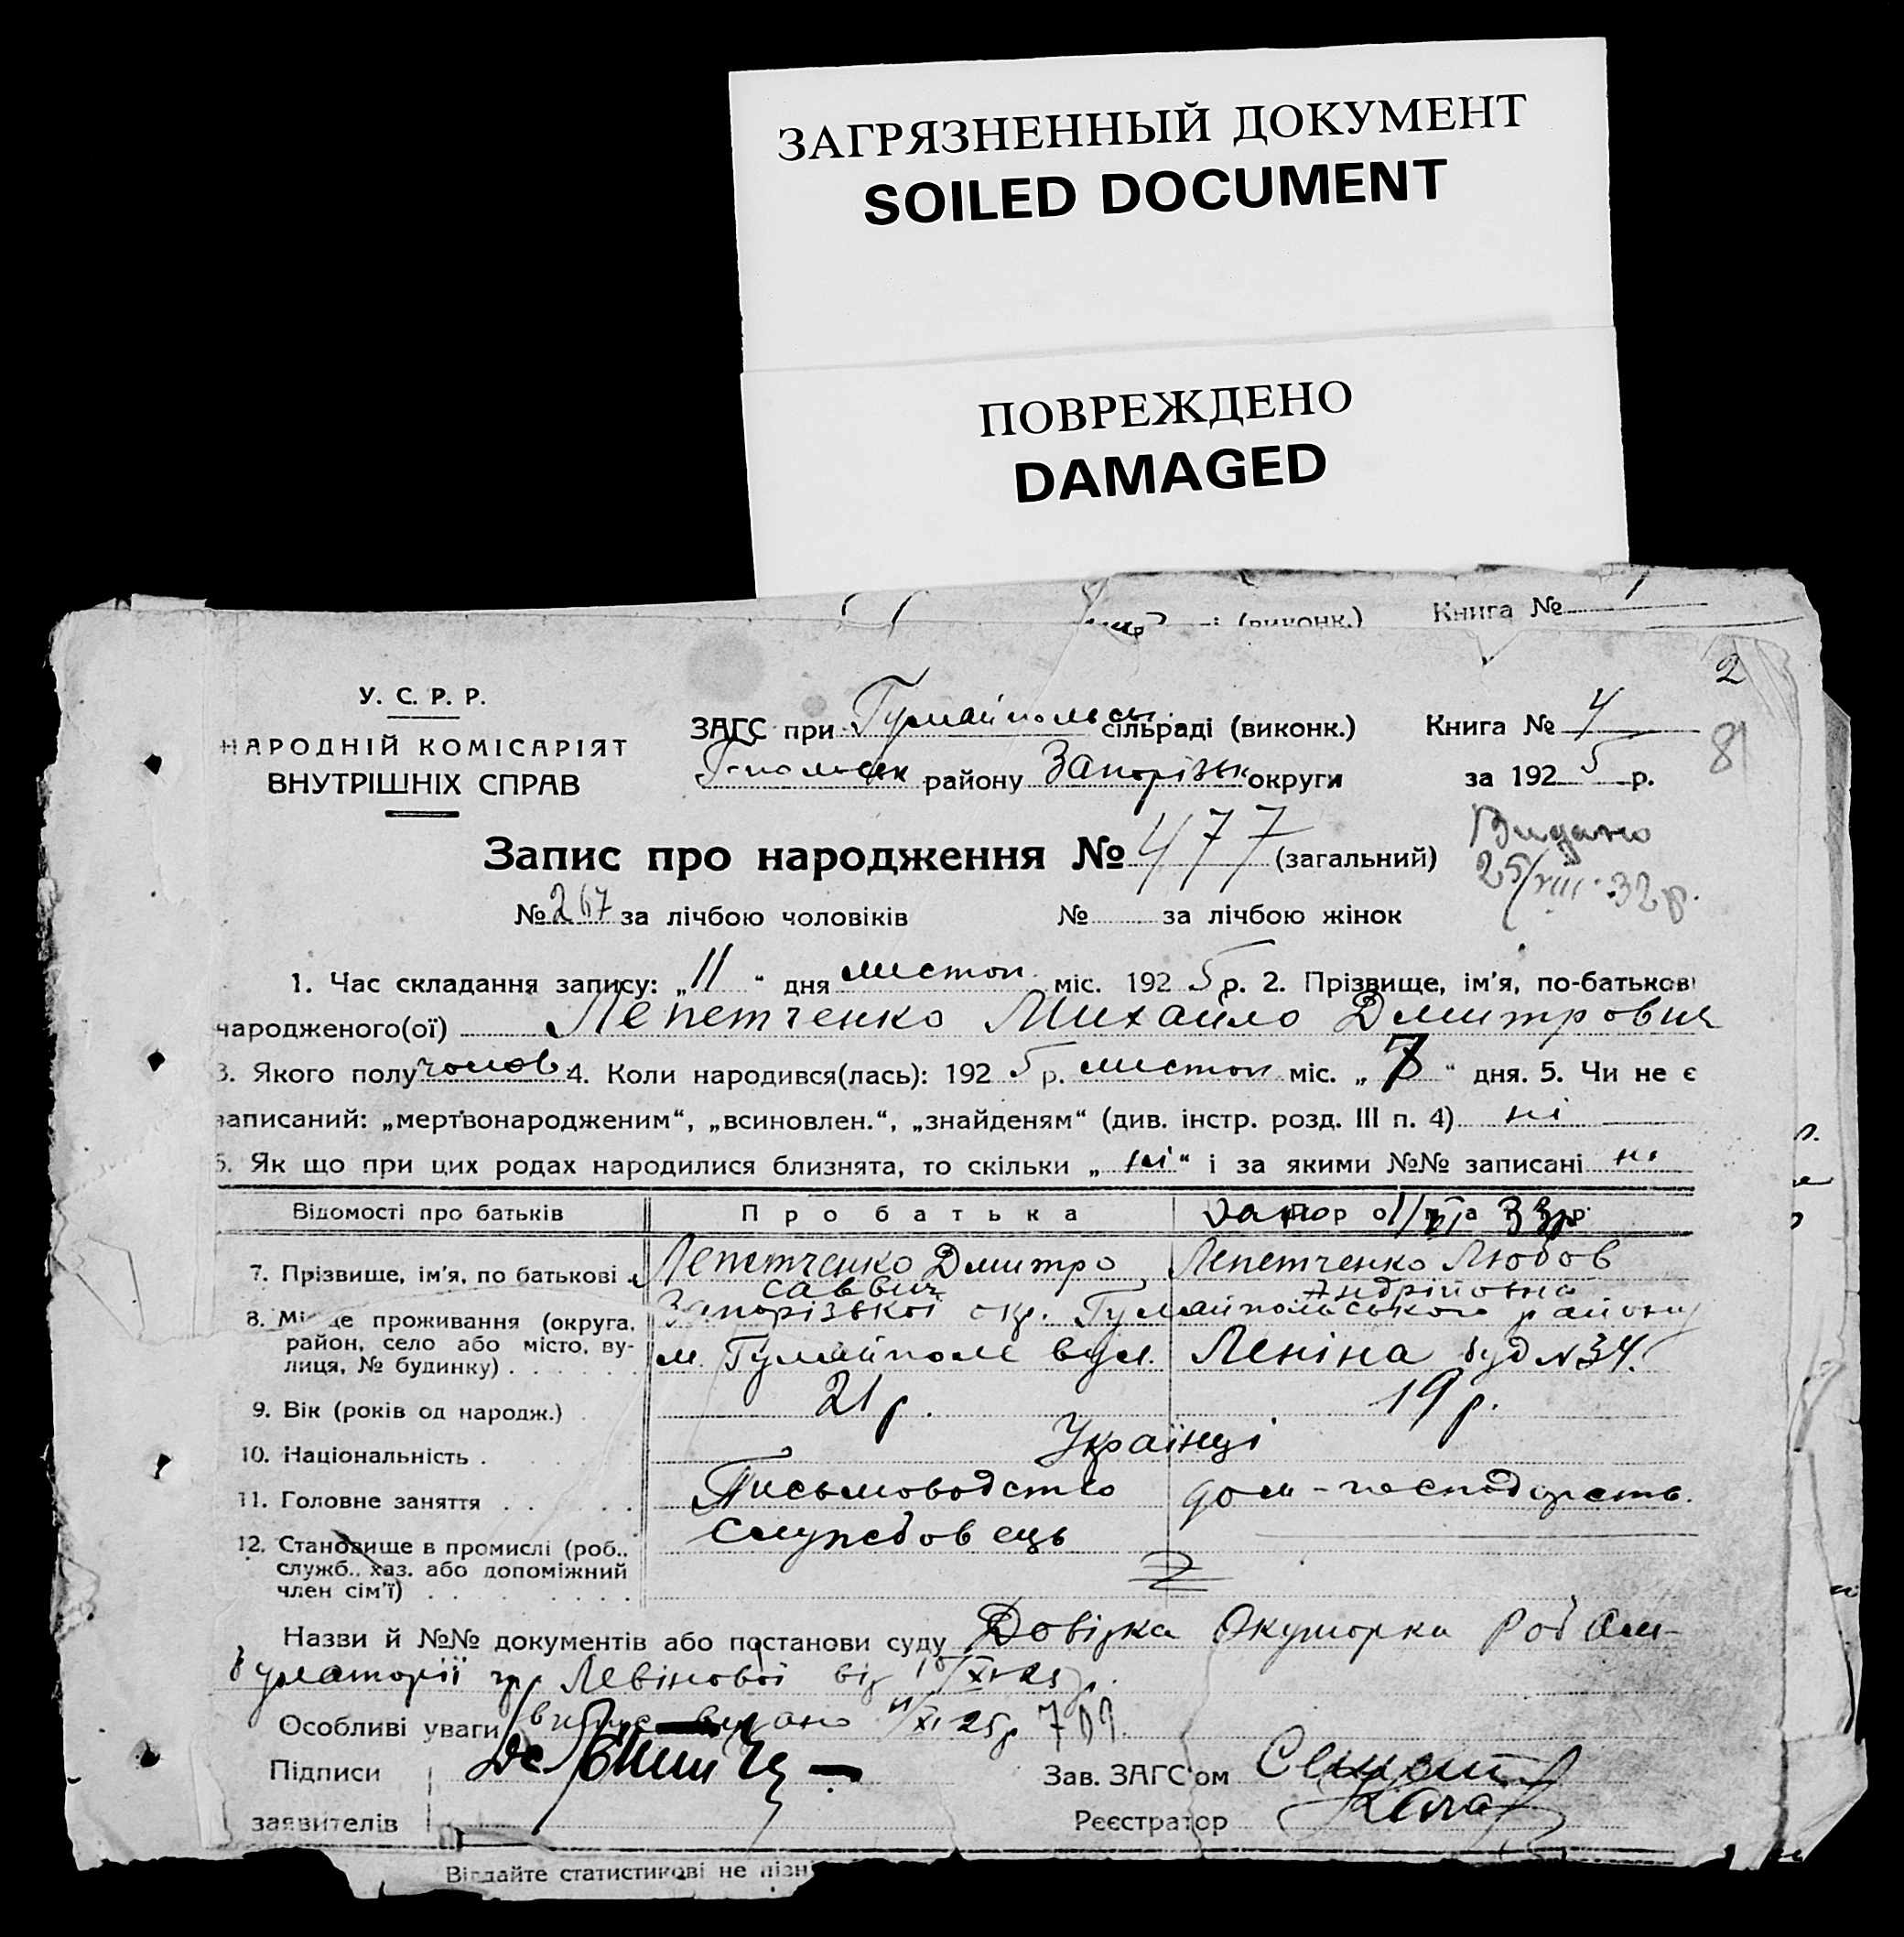 ЗАГРЯЗНЕННЫЙ ДОКУМЕНТ
SOILED DOCUMENT
ПОВРЕЖДЕНО
DAMAGED
(виконк.) Книга №
2
У. С. Р. Р.
НАРОДНІЙ КОМІСАРІЯТ
ВНУТРІШНІХ СПРАВ
ЗАГС при Гуляйпольськ сільраді (виконк.) Книга № 4
району Запорізьк округи за 1925 р.
81
Запис про народження № 477 (загальний)
Видано
25/VIII.32р.
№ 267 за лічбою чоловіків № за лічбою жінок
1. Час складання запису: „11“ дня листоп. міс. 1925 р. 2. Прізвище, ім'я, по-батькові
народженого(ої) Лепетченко Михайло Дмитрович
3. Якого полу чолов. 4. Коли народився(лась): 1925 р. листоп міс. „7“ дня. 5. Чи не є
записаний: „мертвонародженим“, „всиновлен.“, „знайденям“ (див. інстр. розд. III п. 4) ні
6. Як що при цих родах народилися близнята, то скільки „ні“ і за якими №№ записані ні
Відомості про батьків Про батька
7. Прізвище, ім'я, по батькові Лепетченко Дмитро Саввич Лепетченко Любов Андрійовна
8. Місце проживання (округа, Запорізької окр. Гуляйпольського району
район, село або місто, ву-
лиця, № будинку) м. Гуляйполе вул. Леніна буд №34.
9. Вік (років од народж.) 21 р. 19 р.
10. Національність Українці
11. Головне заняття Письмоводство дом-господарств.
12. Становище в промислі (роб., Службовець
служб., хаз. або допоміжний
член сім'ї)
Назви й №№ документів або постанови суду Довідка Окушорки Роб Ам-
булаторії гр. Левінової від 10/XI-25 р.
Особливі уваги видано 11/XI 25р 709
Підписи Зав. ЗАГС'ом
заявителів Реєстратор
Віддайте статистикові не пізн